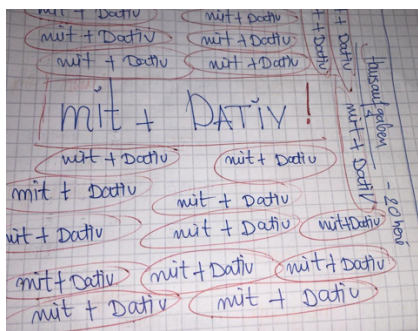 mit + Dativ mit + Dativ
mit + Dativ mit + Dativ
mit + Dativ mit + Dativ
mit + DATIV!
mit + Dativ mit + Dativ
mit + Dativ mit + Dativ
mit + Dativ mit + Dativ mit+Dativ
mit+Dativ mit+Dativ mit+Dativ
mit + Dativ mit + Dativ
+ Dativ
+ Dativ mit + Dativ
Hausaufgaben